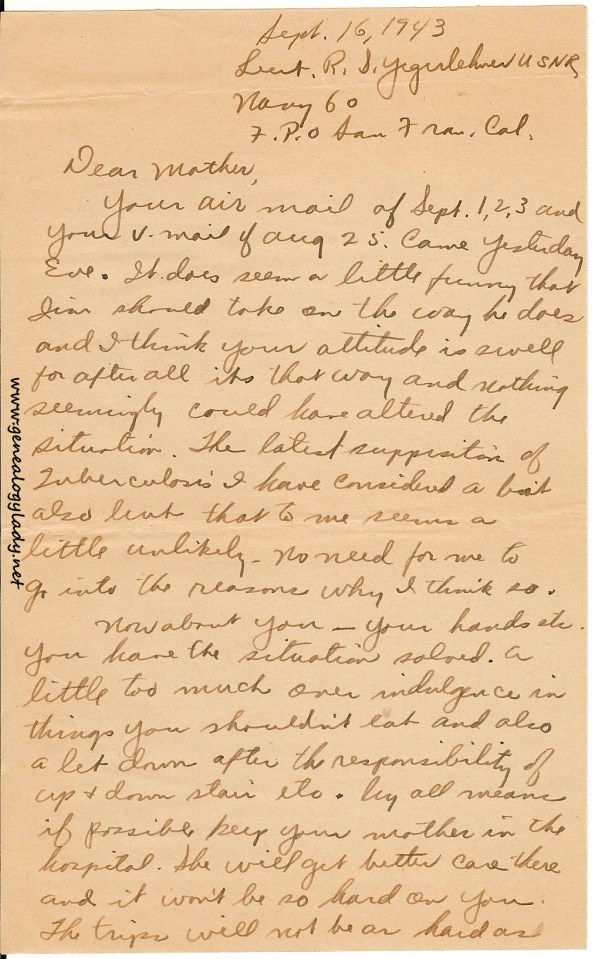 Sept. 16, 1943
Lieut. R. S. Yegerlehner USNR
Navy 60
F.P.O San Fran. Cal.
Dear Mother,
Your air mail of Sept. 1, 2, 3 and
your V. mail of Aug 25. Came yesterday
Eve. It does seem a little funny that
Jim should take on the way he does
and I think your attitude is swell
for after all its that way and nothing
seemingly could have altered the
situation. The latest supposition of
Tuberculosis I have considered a bit
also but that to me seems a
little unlikely - no need for me to
go into the reasons why I think so.
Now about you - your hands etc.
You have the situation solved. A
little too much over indulgence in
things you shouldn't eat and also
a let down after the responsibility of
up & down stair etc. by all means
if possible keep your mother in the
hospital. She will get better care there
and it won't be so hard on you.
The trips will not be as hard as
www.genealogylady.net